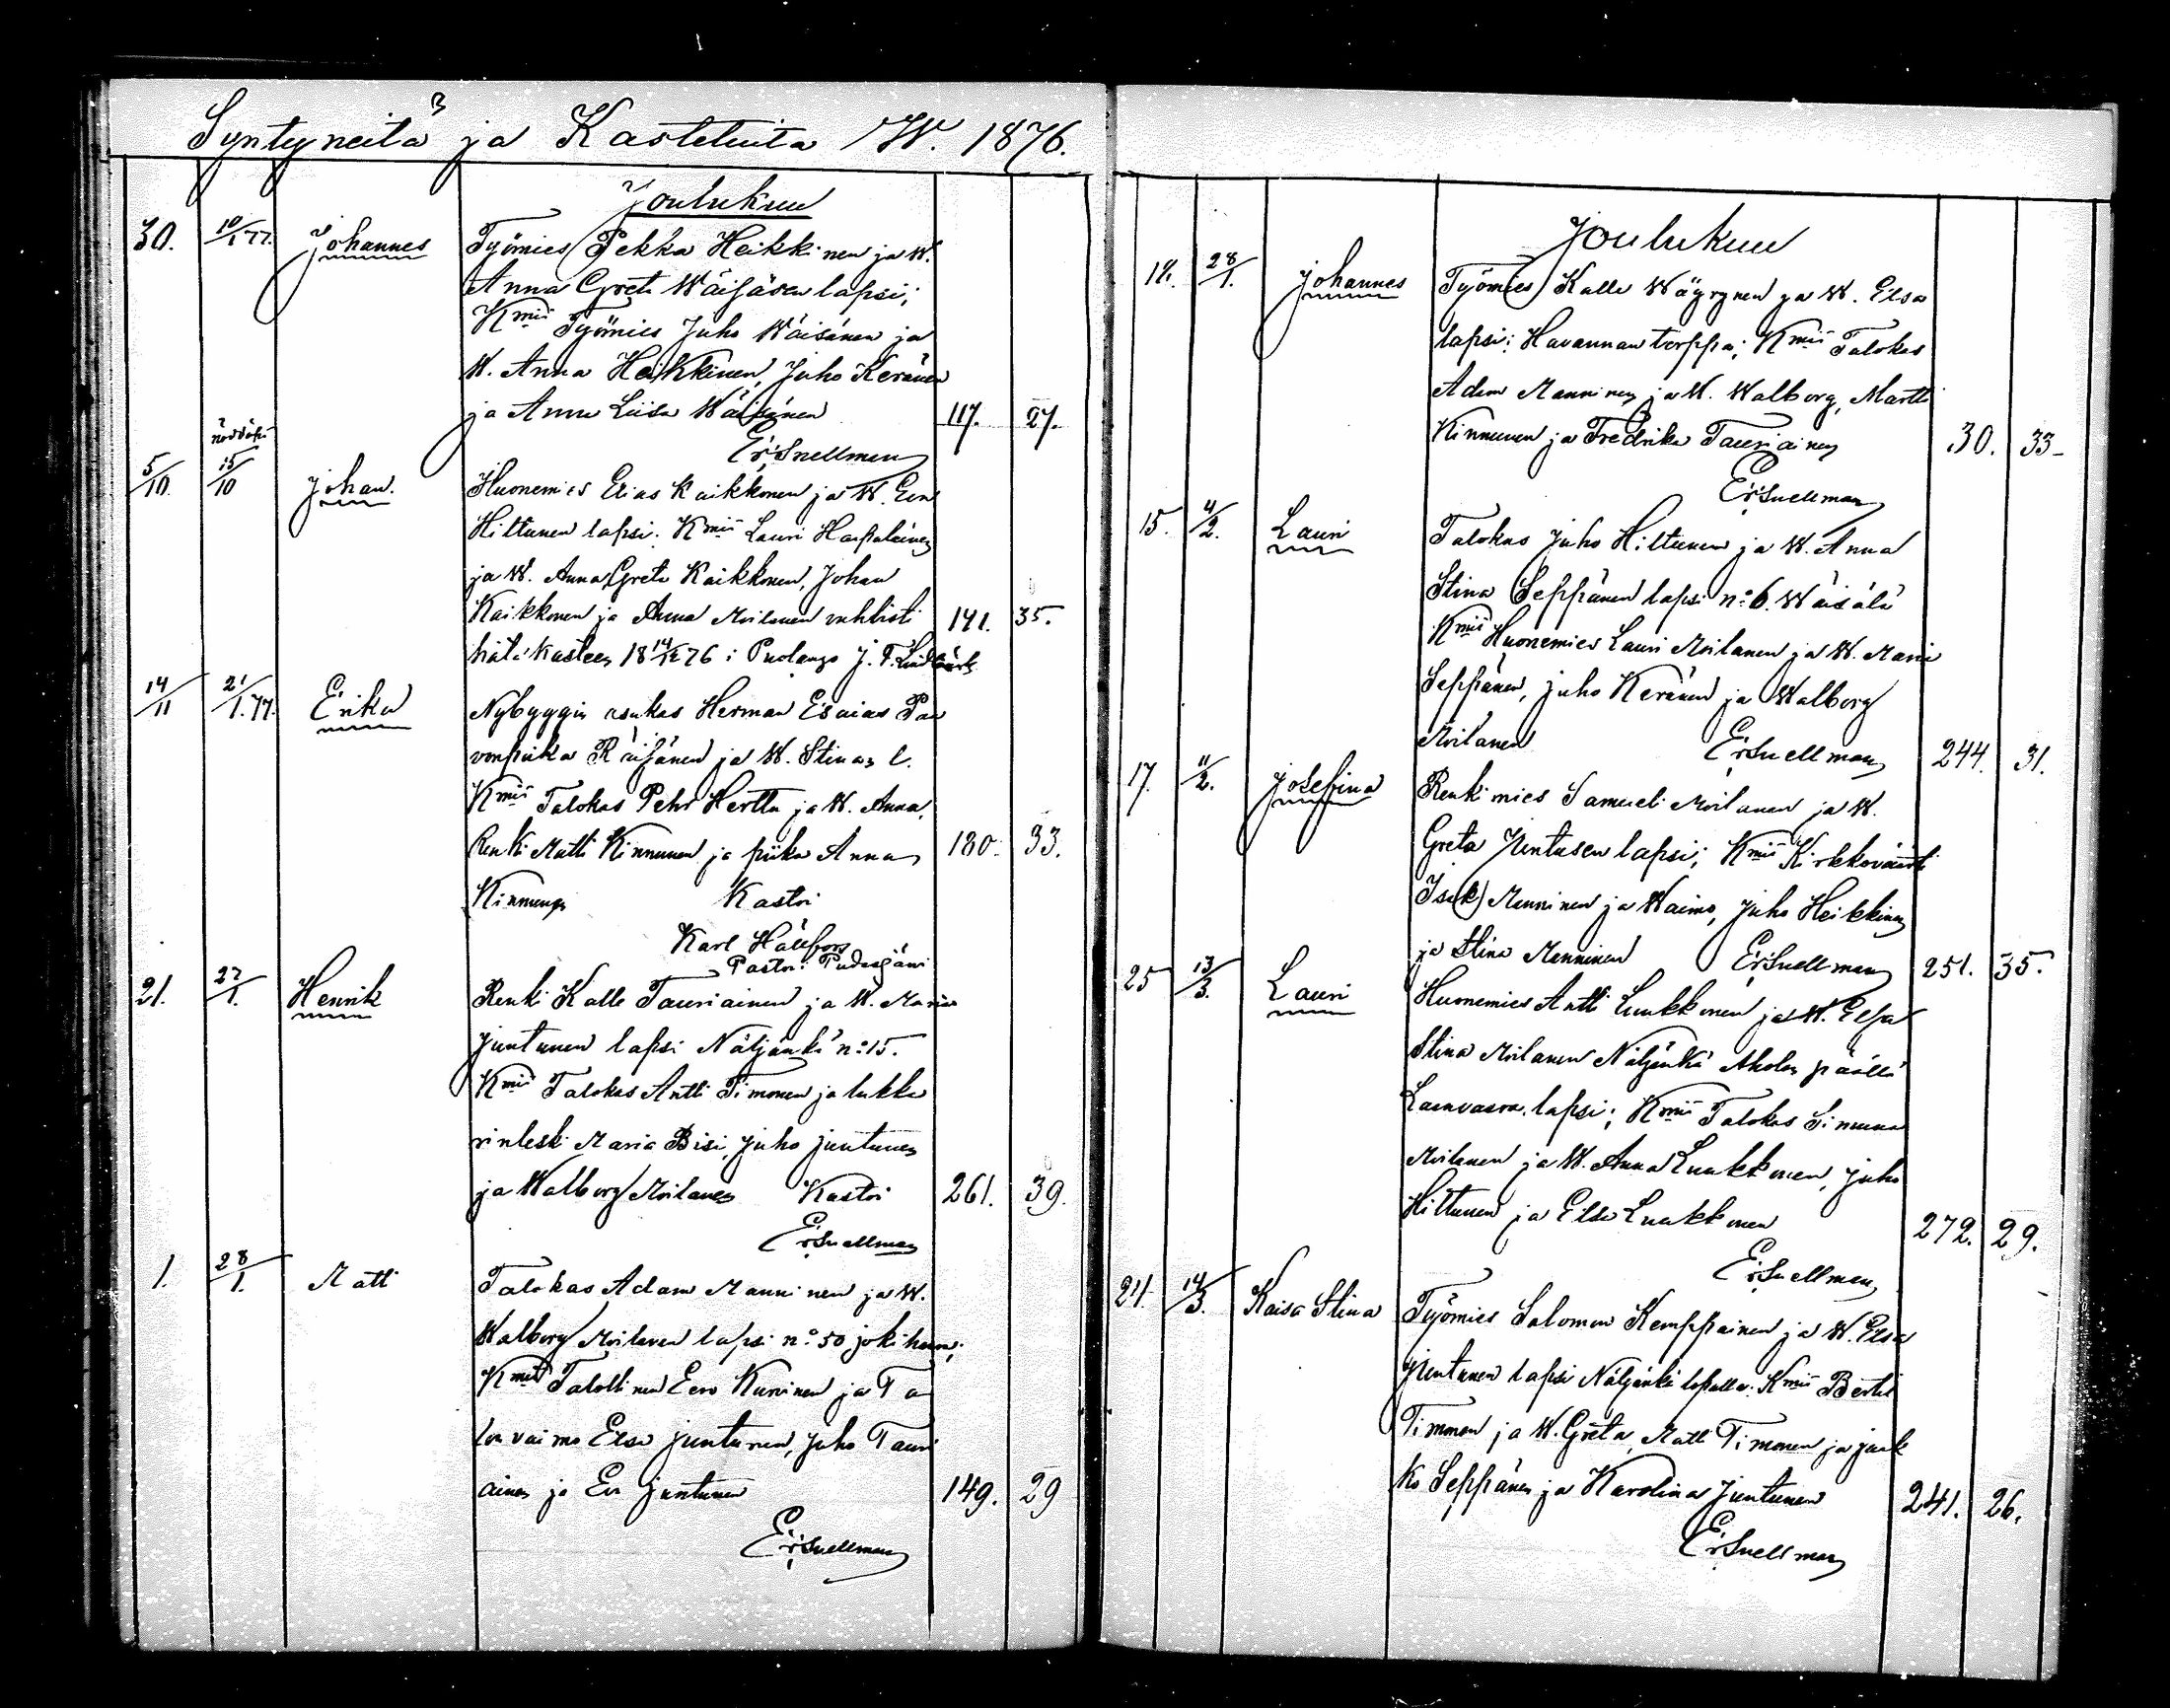 Syntyneitä ja Kastetuita W. 1876.
Joulukuu
30. 10/1 77. Johannes Työmies Pekka Heikkinen ja W.
Anna Greta Wäisäsen lapsi;
Kmii Työmies Juho Wäisänen ja
W. Anna Heikkinen, Juho Keränen
ja Anna Liisa Wäisänen 117. 27.
Er. Snellman
5/10. 15/10 Johan. Huonemies Elias Kaikkonen ja W. Eva
Hiltunen lapsi. Kmii Lauri Haapalainen
ja W. Anna Greta Kaikkonen, Johan
Kaikkonen ja Anna Moilanen vahvisti 141. 35.
hätä kasteen 18 14/12 76 i Puolango J. F.
14/11 21/1.77. Erika Nybyggin asukas Herman Esaias Paa
vonpoika Räisänen ja W. Stinan l.
Kmii Talokas Pehr Hertta ja W. Anna,
Renki Matti Kinnunen ja piika Anna 180. 33.
Kinnunen Kastoi
Karl Hällfors
Pastori Pudasjärvi
21. 27/1. Henrik Renki Kalle Tauriainen ja W. Maria
Juntunen lapsi Näljänkä no 15.
Kmii Talokas Antti Timonen ja lukka
rinleski Maria Bisi, Juho Juntunen
ja Walborg Moilanen Kastoi 261. 39.
Er. Snellman
1. 28/1. Matti Talokas Adam Manninen ja W.
Walborg Moilanen lapsi no 50 Jokihaara;
Kmii Talollinen Eero Kurvinen ja Ta
lon vaimo Elsa Juntunen, Juho Tauri
ainen ja Eva Juntunen 149. 29
Er. Snellman
Joulukuu
12. 28/1. Johannes Työmies Kalle Wäyrynen ja W. Elsa
lapsi; Havannan torppa; Kmii Talokas
Adam Manninen ja W. Walborg, Martti
Kinnunen ja Fredrika Tauriainen 30. 33
Er. Snellman
15. 4/2. Lauri Talokas Juho Hiltunen ja W. Anna
Stina Seppänen lapsi no 6. Wäisälä
Kmii Huonemies Lauri Moilanen ja W. Maria
Seppänen, Juho Keränen ja Walborg
Moilanen Er. Snellman 244. 31.
17. 11/2. Josefina Renkimies Samueli Moilanen ja W.
Greta Juntusen lapsi; Kmii Kirkkovärti
Isak Manninen ja Waimo, Juho Heikkinen
ja Stina Manninen Er. Snellman 251. 35.
25 13/3. Lauri Huonemies Antti Luukkonen ja W. Elsa
Stina Moilanen Näljänkä Aholan päällä
lapsi; Kmii Talokas Simuna
Moilanen ja W. Anna Luukkonen, Juho
Hiltunen ja Elsa Luukkonen 272. 29.
Er. Snellman
24. 14/3. Kaisa Stina Työmies Salomon Kemppainen ja W. Elsa
Juntunen lapsi Näljänkä Kmii Bertil
Timonen ja W. Greta, Matti Timonen ja Jaak
ko Seppänen ja Karolina Juntunen 241. 26.
Er. Snellman